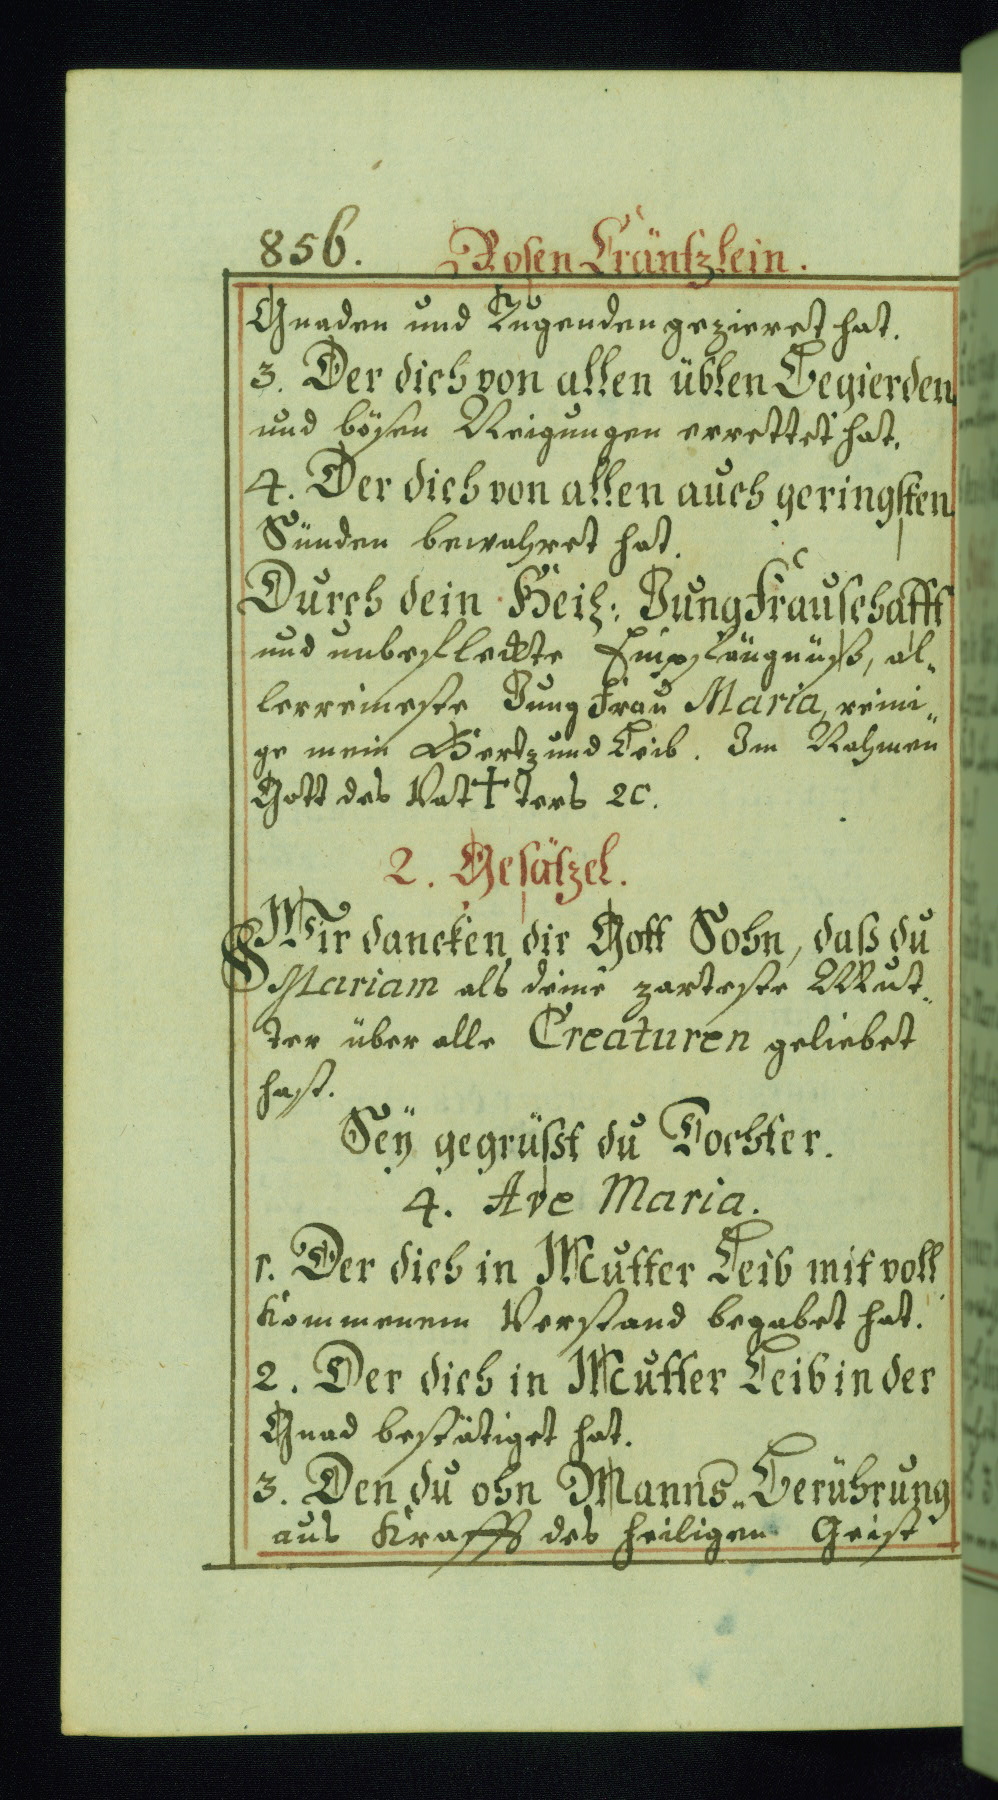 856. Rosen Cräntzlein.
Gnaden und Tugenden gezieret hat.
3. Der dich von allen üblen Begierden
und bösen Neigungen errettet hat.
4. Der dich von allen auch geringsten
Sünden bewahret hat.
Durch dein Heil: Jungfrauschafft
und unbefleckte Empfängnüß, al„
lerreineste Jungfrau Maria, reini„
ge mein Hertz und Leib. Im Nahmen
Gott des Vat † ters 2c.
2. Gesätzel.
Wir dancken dir Gott Sohn, daß du
Mariam als deine zarteste Mut„
ter über alle Creaturen geliebet
hast.
Seÿ gegrüßt du Tochter.
4. Ave Maria.
1. Der dich in Mutter Leib mit voll
kommenem Verstand begabet hat.
2. Der dich in Mutter Leib in der
Gnad bestätiget hat.
3. Den du ohn Manns„Berührung
aus Krafft des heiligen Geist